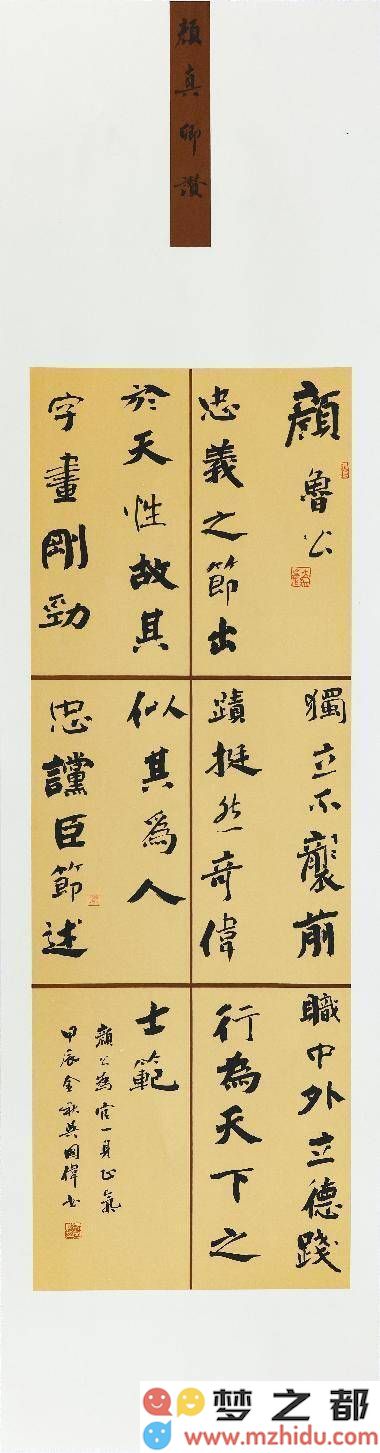 顏真卿讚
顏魯公
忠義之節出
於天性故其
字畫剛勁
獨立不襲前
蹟挺然奇偉
似其爲人
忠讜臣節述
職中外立德踐
行為天下之
士範
顏公為官一身正氣
甲辰金秋吳國偉書
梦之都
www.mzhidu.com